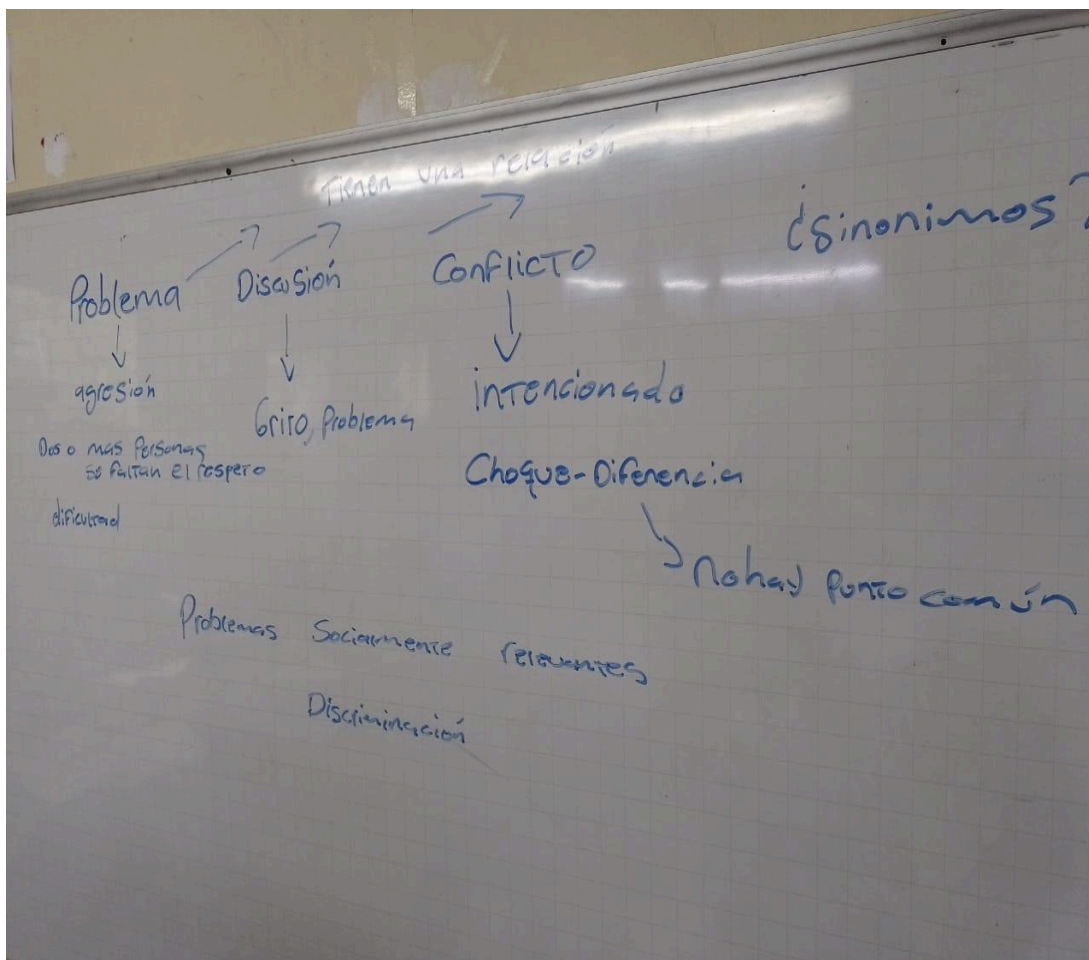 Tienen una relación
¿Sinonimos?
Problema Discusión Conflicto
agresión
Dos o mas Personas
se faltan el respeto
dificultad
Grito, Problema
intencionado
Choque-Diferencia
no hay Punto común
Problemas Socialmente relevantes
Discriminación